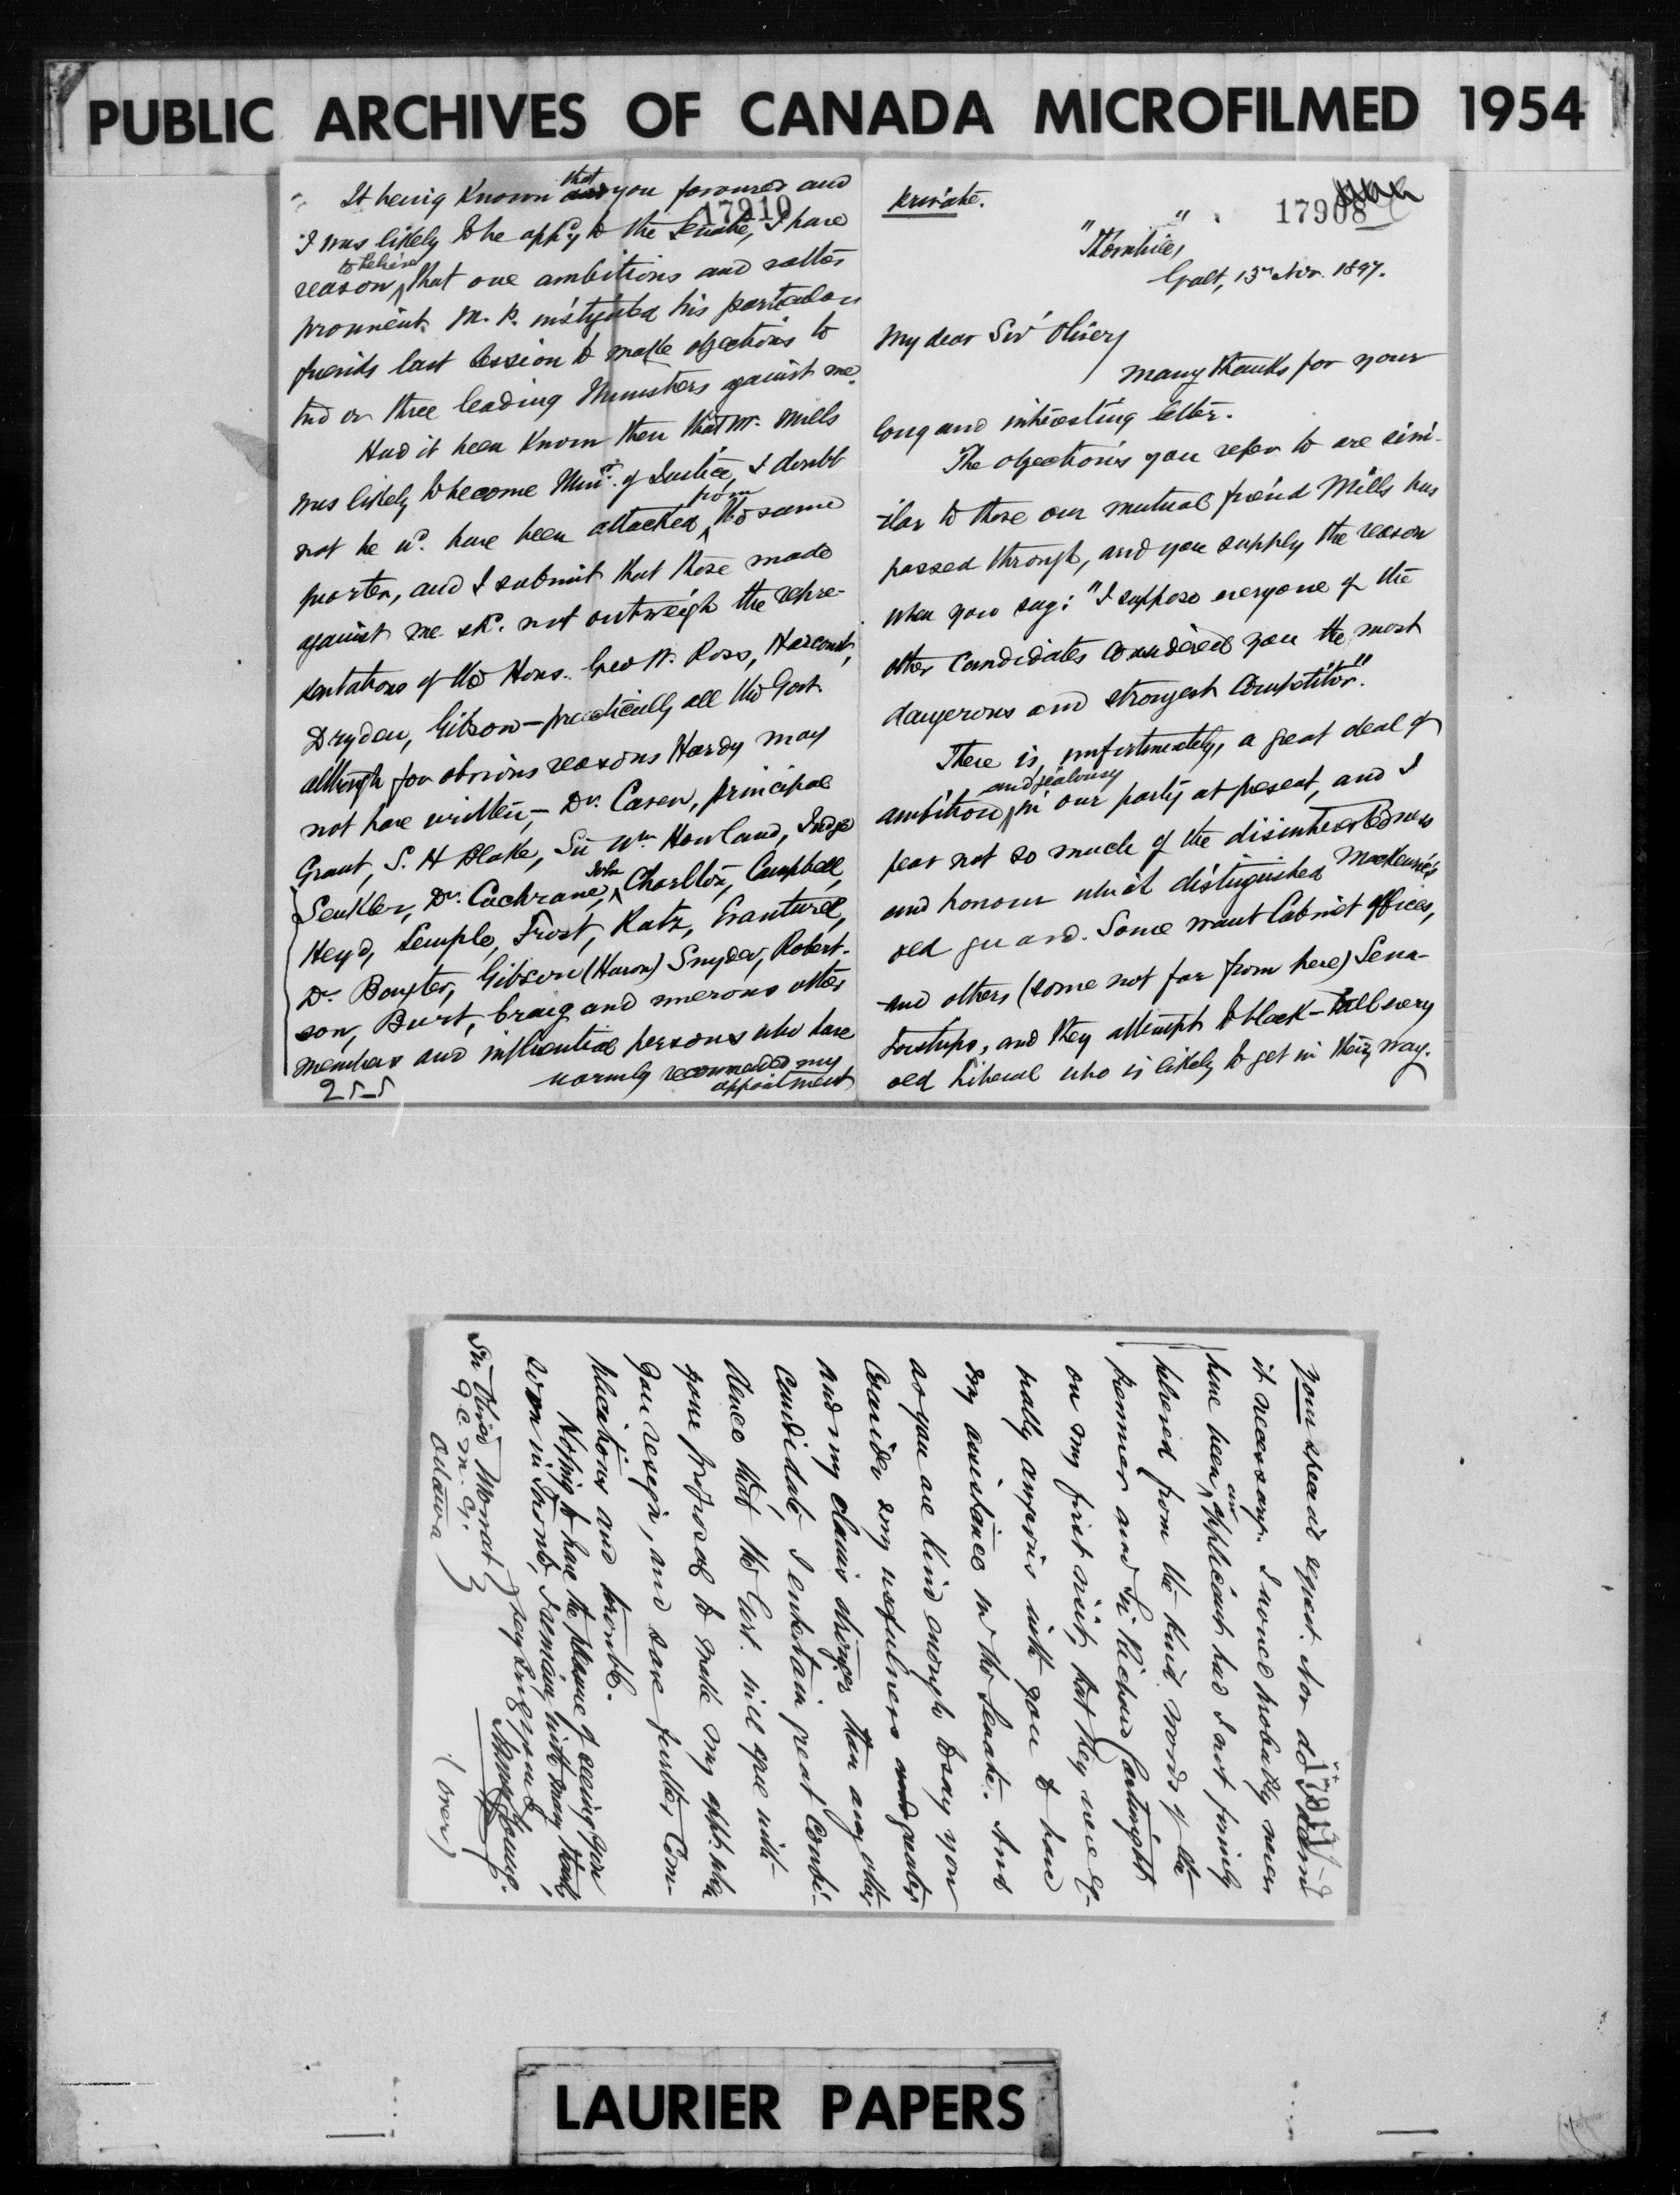 PUBLIC ARCHIVES OF CANADA MICROFILMED 1954
Private.
17908
"Thornhill"
Galt, 13th Nov. 1897.
My dear Sir Oliver,
Many thanks for your
long and interesting letter.
The objections you refer to are simi-
ilar to those our mutual friend Mills has
passed through, and you supply the reason
when you say: "I suppose everyone of the
other Candidates considered you the most
dangerous and strongest Competitor."
There is, unfortunately, a great deal of
ambition and jealousy in our party at present, and I
fear not so much of the disinterestedness
and honour which distinguished Mackenzie's
old guard. Some want Cabinet offices,
and others (some not far from here) Sena-
torships, and they attempt to black-ball every
old Liberal who is likely to get in their way.
17910
It being known that you favoured and
I was likely to be app'd to the Senate, I have
reason to believe that one ambitious and rather
prominent M.P. instigated his particular
friends last session to make objections to
two or three leading Ministers against me.
Had it been known then that Mr. Mills
was likely to become Minr. of Justice, I doubt
not he wd. have been attacked from the same
quarter, and I submit that those made
against me shd. not outweigh the repre-
sentations of the Hons. Geo W. Ross, Harcourt,
Dryden, Gibson - practically all the Govt.
although for obvious reasons Hardy may
not have written, - Dr. Caven, Principal
Grant, S. H Blake, Sir Wm Howland, Judge
Senkler, Dr. Cochrane, John Charlton, Campbell,
Heyd, Semple, Frost, Ratz, Evanturel,
Dr. Boughter, Gibson (Huron) Snyder, Robert-
son, Burt, Craig and numerous other
members and influential persons who have
warmly recommended my
appointment
255
17911
Your special agent. Nor do I deem
it necessary. I would probably never
have been an applicant had I not firmly
believed from the kind words of the
Premier and Sir Richard Cartwright
on my first visit, that they were eq-
ually anxious with you to have
my assistance in the Senate. And
as you are kind enough to say you
consider my usefulness greater
and my claims stronger than any other
candidate I entertain great confi-
dence that the Govt. will agree with
your proposal to make my appt. when
you resign, and save further com-
plications and trouble.
Hoping to have the pleasure of seeing you
soon in Toronto, I remain, with many thanks,
Very Sincy yours
James Young.
Sir Oliver Mowat
G.C.M.G.
Ottawa
(over)
LAURIER PAPERS